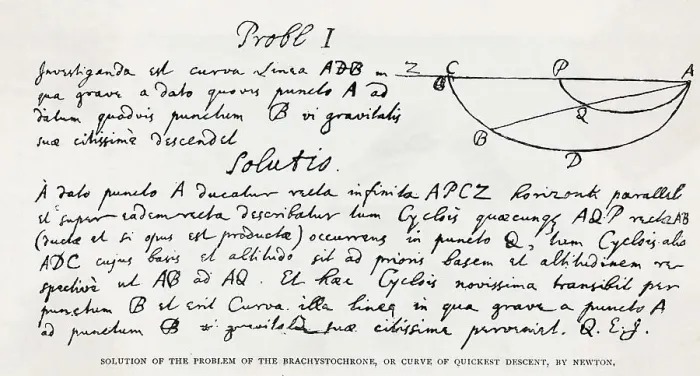 Probl I
Investiganda est curva Linea ADB in
qua grave a dato quovis puncto A ad
datum quodvis punctum B vi gravitatis
suæ citissimè descendet
Solutio.
A dato puncto A ducatur recta infinita APCZ horizonti parallela
et super eadem recta describatur tum Cyclois quæcunqꝫ AQP rectæ AB
(ductæ et si opus est productæ) occurrens in puncto Q, tum Cyclois alia
ADC cujus basis et altitudo sit ad prioris basem et altitudinem re-
spectivè ut AB ad AQ. Et hæc Cyclois novissima transibit per
punctum B et erit Curva illa linea in qua grave a puncto A
ad punctum B vi gravitatis suæ citissime perveniet. Q. E. I.
Z C P A
B Q
D
SOLUTION OF THE PROBLEM OF THE BRACHYSTOCHRONE, OR CURVE OF QUICKEST DESCENT, BY NEWTON.